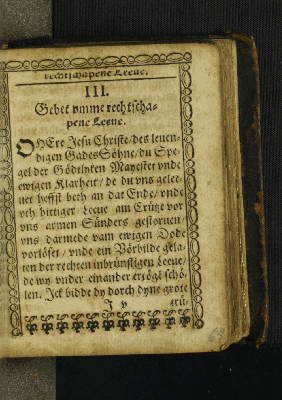 rechtschapene Leeue.
III.
Gebet vmme rechtscha-
pene Leeue.
OHEre Jesu Christe/des leuen-
digen Gades Söhne/du Spe-
gel der Gödtlyken Mayestet vnde
ewigen Klarheit/ de du vns gelee-
uet heffst beth an dat Ende/ vnde
vth hittiger Leeue am Crütze vor
vns armen Sünders gestoruen/
vns darmede vam ewigen Dode
vorlöset/ vnde ein Vörbilde gela-
ten der rechten inbrünstigen Leeue/
de wy vnder einander ertögē schö-
len. Ick bidde dy dorch dyne grote
J v